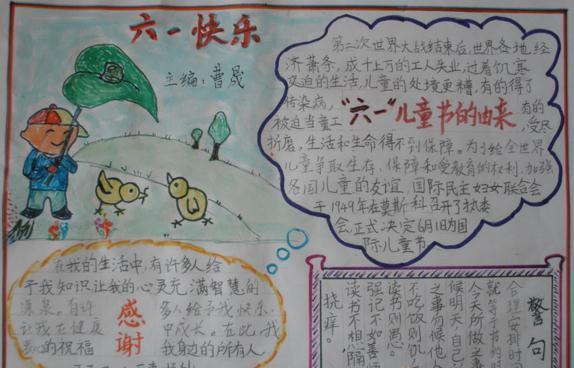 六一快乐
主编:曹晟
第二次世界大战结束后,世界各地,经
济萧条,成千上万的工人失业,过着饥寒
交迫的生活,儿童的处境更糟,有的得了
传染病,
"六一"儿童节的由来
有的
被迫当童工
受尽
折磨,生活和生命得不到保障。为了给全世界
儿童争取生存、保障和受教育的权利,加强
各国儿童的友谊,国际民主妇女联合会
于1949年在莫斯科召开了执委
会,正式决定6月1日为国
际儿童节
在我的生活中,有许多人给
于我知识让我的心灵充满智慧的
源泉。有许
多人给予我快乐
让我在健康
中成长。在此,我
的祝福
我身边的所有人
感谢
警句
合理安排时间
就等于节约时
今天所做之事
候明天,自己
之事勿候他人
不吃饭则饥
不读书则愚
强记不如善悟
读书不相
挠痒。